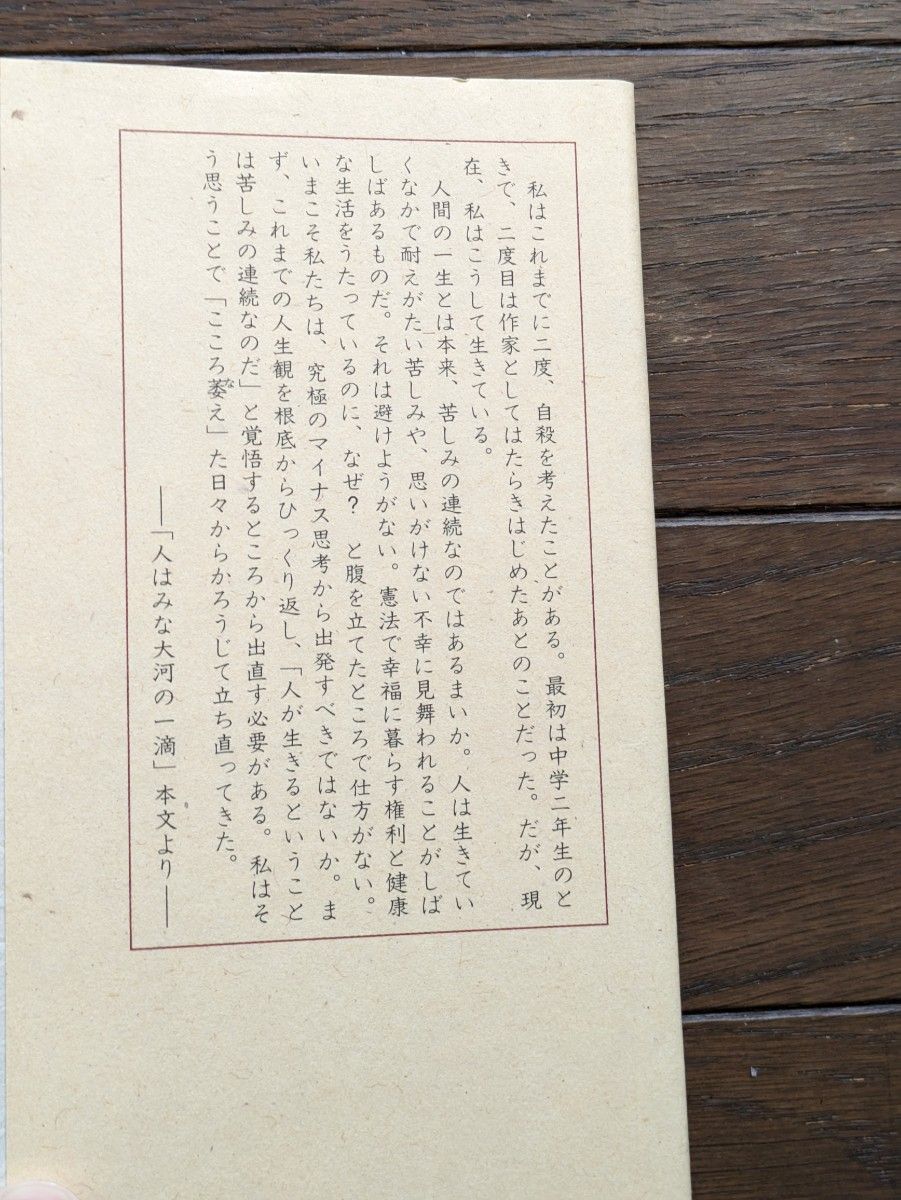 私はこれまでに二度、自殺を考えたことがある。最初は中学二年生のと
きで、二度目は作家としてはたらきはじめたあとのことだった。だが、現
在、私はこうして生きている。
人間の一生とは本来、苦しみの連続なのではあるまいか。人は生きてい
くなかで耐えがたい苦しみや、思いがけない不幸に見舞われることがしば
しばあるものだ。それは避けようがない。憲法で幸福に暮らす権利と健康
な生活をうたっているのに、なぜ？　と腹を立てたところで仕方がない。
いまこそ私たちは、究極のマイナス思考から出発すべきではないか。ま
ず、これまでの人生観を根底からひっくり返し、「人が生きるということ
は苦しみの連続なのだ」と覚悟するところから出直す必要がある。私はそ
う思うことで「こころ萎え」た日々からかろうじて立ち直ってきた。
な
――「人はみな大河の一滴」本文より――